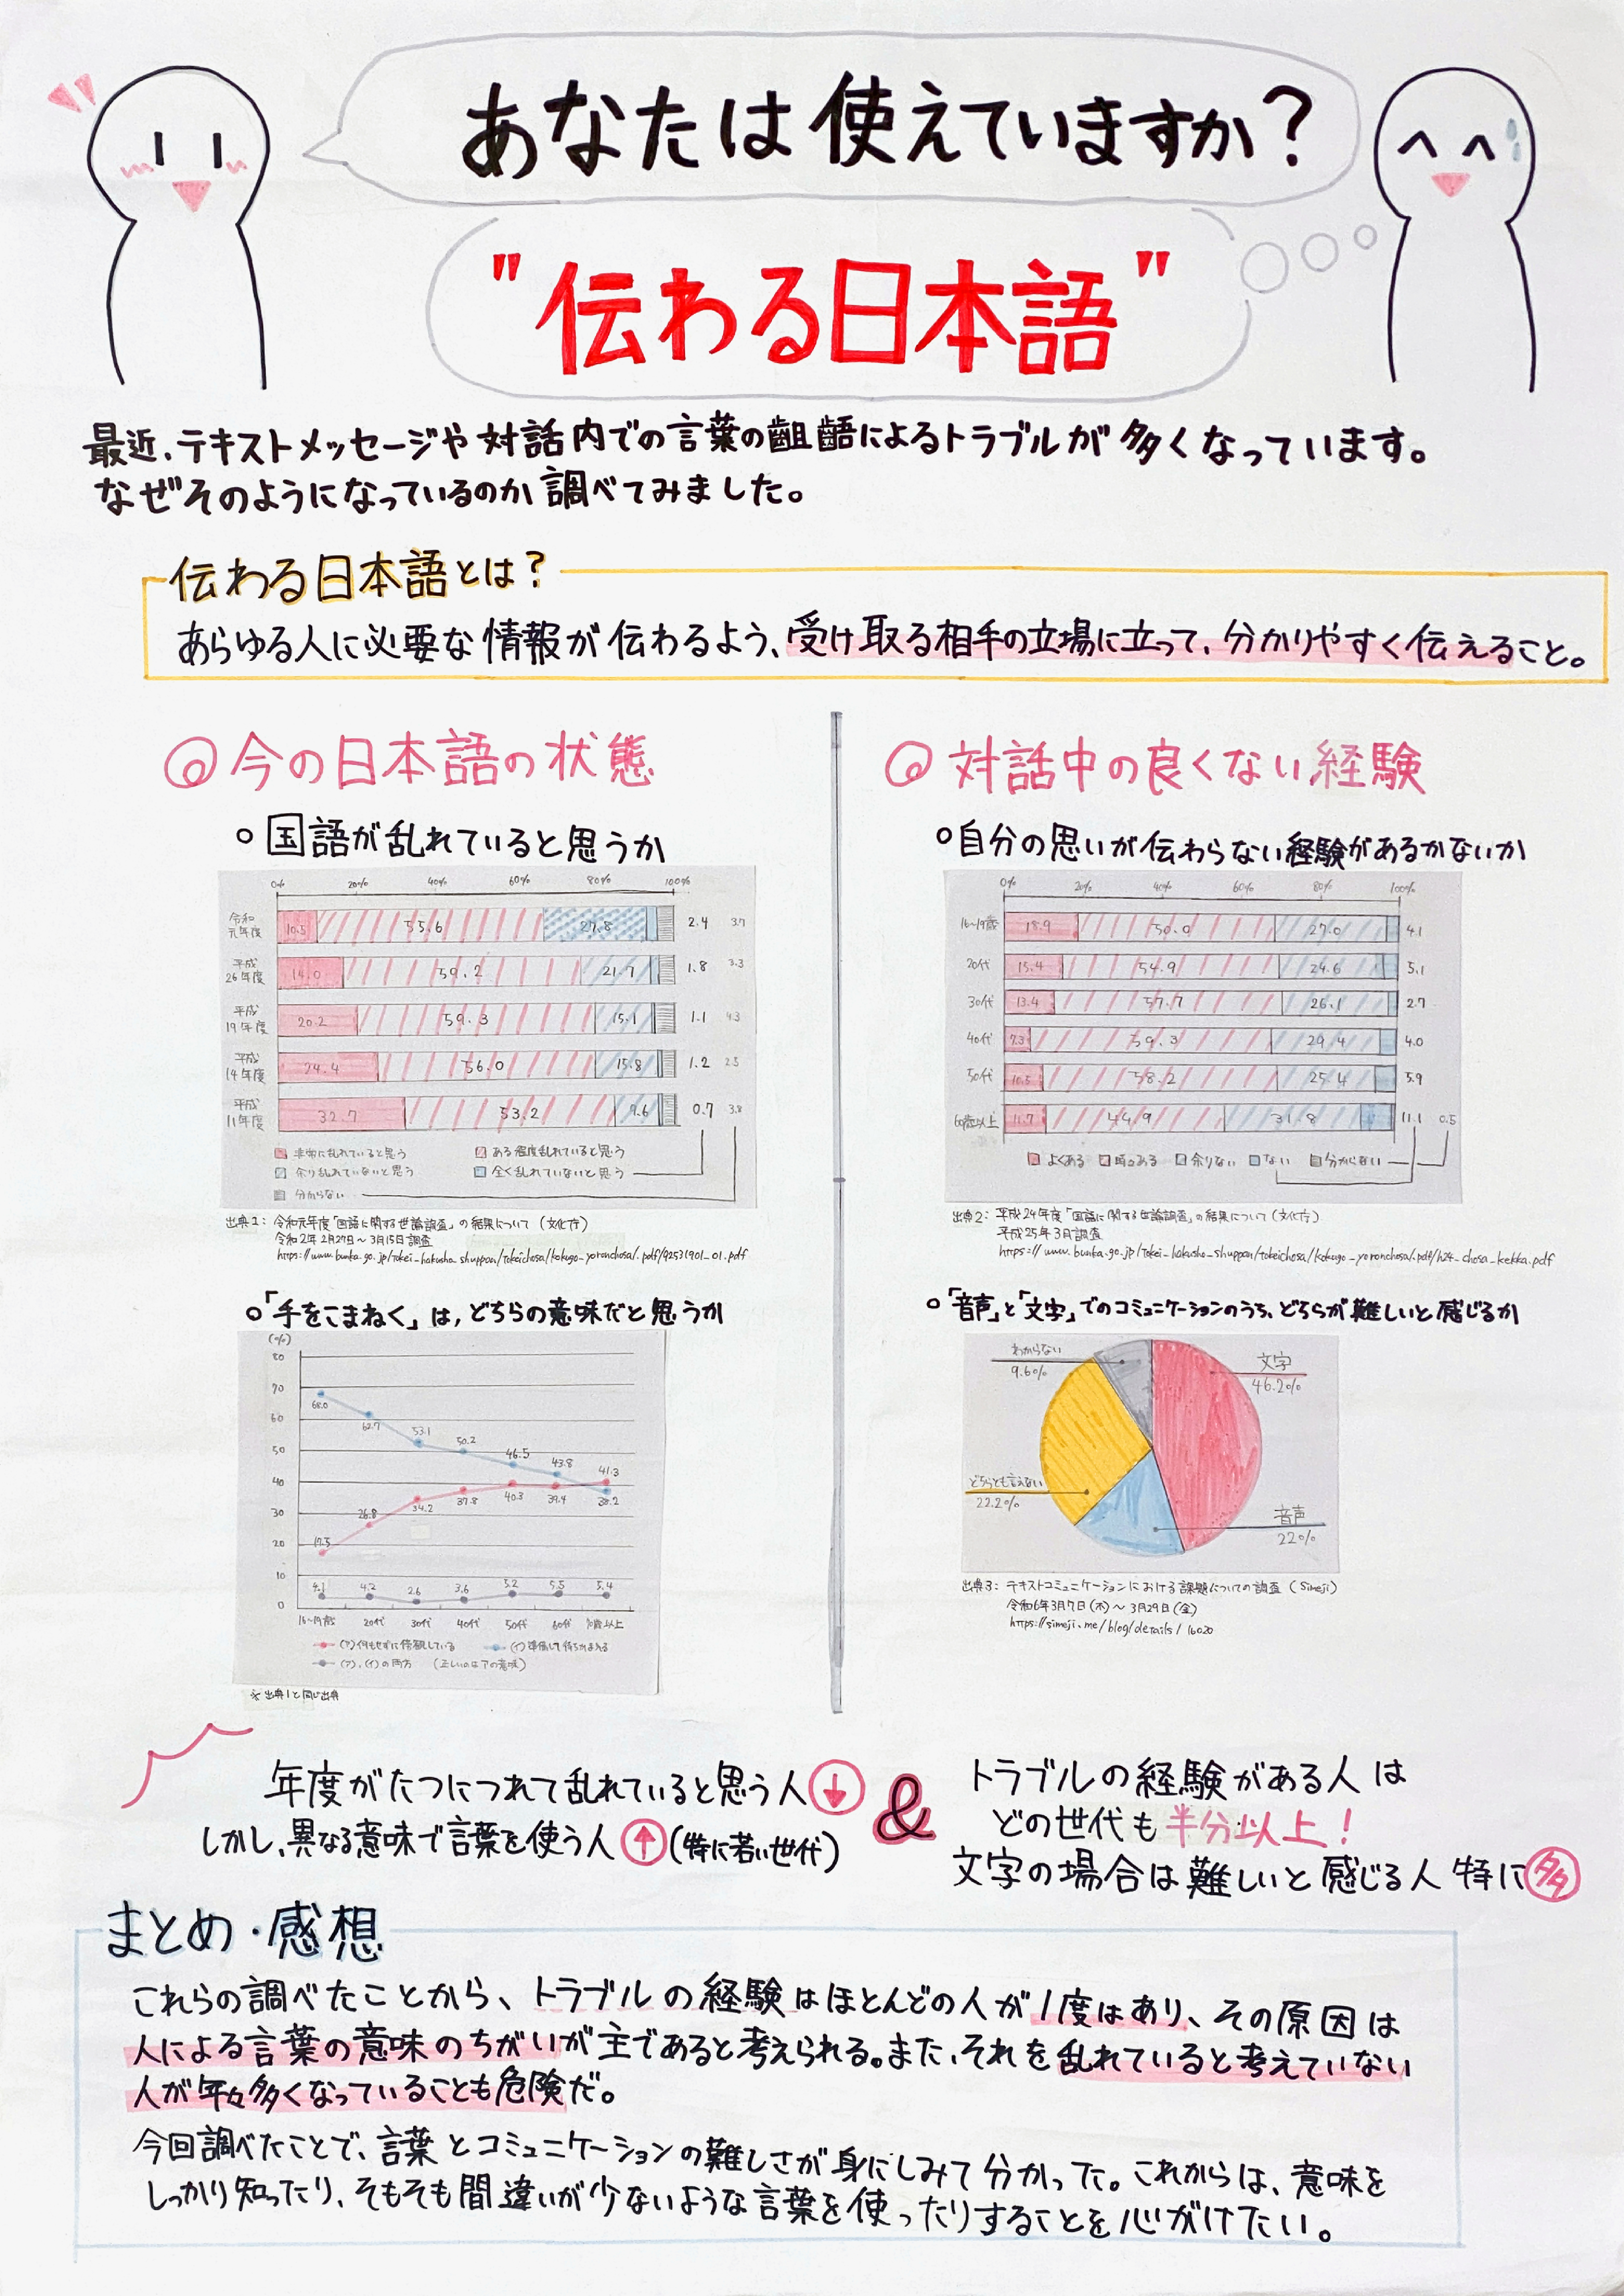 あなたは使えていますか?
"伝わる日本語"
最近、テキストメッセージや対話内での言葉の齟齬によるトラブルが多くなっています。
なぜそのようになっているのか調べてみました。
伝わる日本語とは?
あらゆる人に必要な情報が伝わるよう、受け取る相手の立場に立って、分かりやすく伝えること。
◎今の日本語の状態
○国語が乱れていると思うか
0% 20% 40% 60% 80% 100%
令和元年度 10.5 55.6 27.8 2.4 3.7
平成26年度 14.0 59.2 21.7 1.8 3.3
平成19年度 20.2 59.3 15.1 1.1 4.3
平成14年度 24.4 56.0 15.8 1.2 2.5
平成11年度 32.7 53.2 9.6 0.7 3.8
非常に乱れていると思う ある程度乱れていると思う
余り乱れていないと思う 全く乱れていないと思う
分からない
出典1: 令和元年度「国語に関する世論調査」の結果について (文化庁)
令和2年2月27日〜3月15日調査
https://www.bunka.go.jp/tokei_hakusho_shuppan/tokeichosa/kokugo_yoronchosa/.pdf/92531901_01.pdf
○「手をこまねく」は,どちらの意味だと思うか
(%)
80
70
60
50
40
30
20
10
0
68.0 62.7 53.1 50.2 46.5 43.8 38.2
17.5 26.8 34.2 37.8 40.3 39.4 41.3
4.1 4.2 2.6 3.6 5.2 5.5 5.4
16〜19歳 20代 30代 40代 50代 60代 70歳以上
(ア)何もせずに傍観している (イ)準備して待ちかまえる
(ア)、(イ)の両方 (正しいのはアの意味)
※出典1と同じ出典
◎対話中の良くない経験
○自分の思いが伝わらない経験があるかないか
0% 20% 40% 60% 80% 100%
16〜19歳 18.9 50.0 27.0 4.1
20代 15.4 54.9 24.6 5.1
30代 13.4 57.7 26.1 2.7
40代 7.3 59.3 29.4 4.0
50代 10.5 58.2 25.4 5.9
60歳以上 11.7 44.9 31.8 11.1 0.5
よくある 時々ある 余りない ない 分からない
出典2: 平成24年度「国語に関する世論調査」の結果について (文化庁)
平成25年3月調査
https://www.bunka.go.jp/tokei_hakusho_shuppan/tokeichosa/kokugo_yoronchosa/.pdf/h24_chosa_kekka.pdf
○「音声」と「文字」でのコミュニケーションのうち、どちらが難しいと感じるか
わからない
9.6%
文字
46.2%
どちらとも言えない
22.2%
音声
22%
出典3: テキストコミュニケーションにおける課題についての調査 (Simeji)
令和6年3月7日(木)〜3月29日(金)
https://simeji.me/blog/details/16020
年度がたつにつれて乱れていると思う人↓
しかし、異なる意味で言葉を使う人↑(特に若い世代)
&
トラブルの経験がある人は
どの世代も半分以上!
文字の場合は難しいと感じる人特に多
まとめ・感想
これらの調べたことから、トラブルの経験はほとんどの人が1度はあり、その原因は
人による言葉の意味のちがいが主であると考えられる。また、それを乱れていると考えていない
人が年々多くなっていることも危険だ。
今回調べたことで、言葉とコミュニケーションの難しさが身にしみて分かった。これからは、意味を
しっかり知ったり、そもそも間違いが少ないような言葉を使ったりすることを心がけたい。